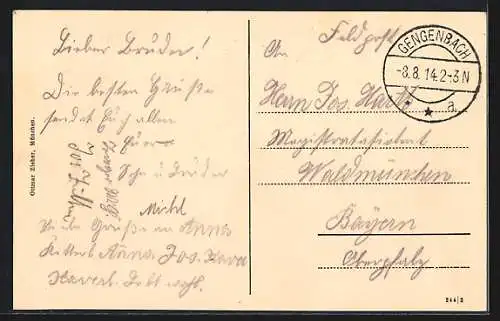 Lieber Bruder!
Die besten Grüße
sendet Euch allen
Euer
Sohn u Bruder
Michl
Viele Grüße an Anna
Anna. Jos.
Lebt wohl.
Ottmar Zieher, München.
An
Feldpost
GENGENBACH
-8.8.14.2-3N
* a.
Herrn Jos.
Magistratsdienst
Waldmünchen
Bayern
Oberpfalz
244|2